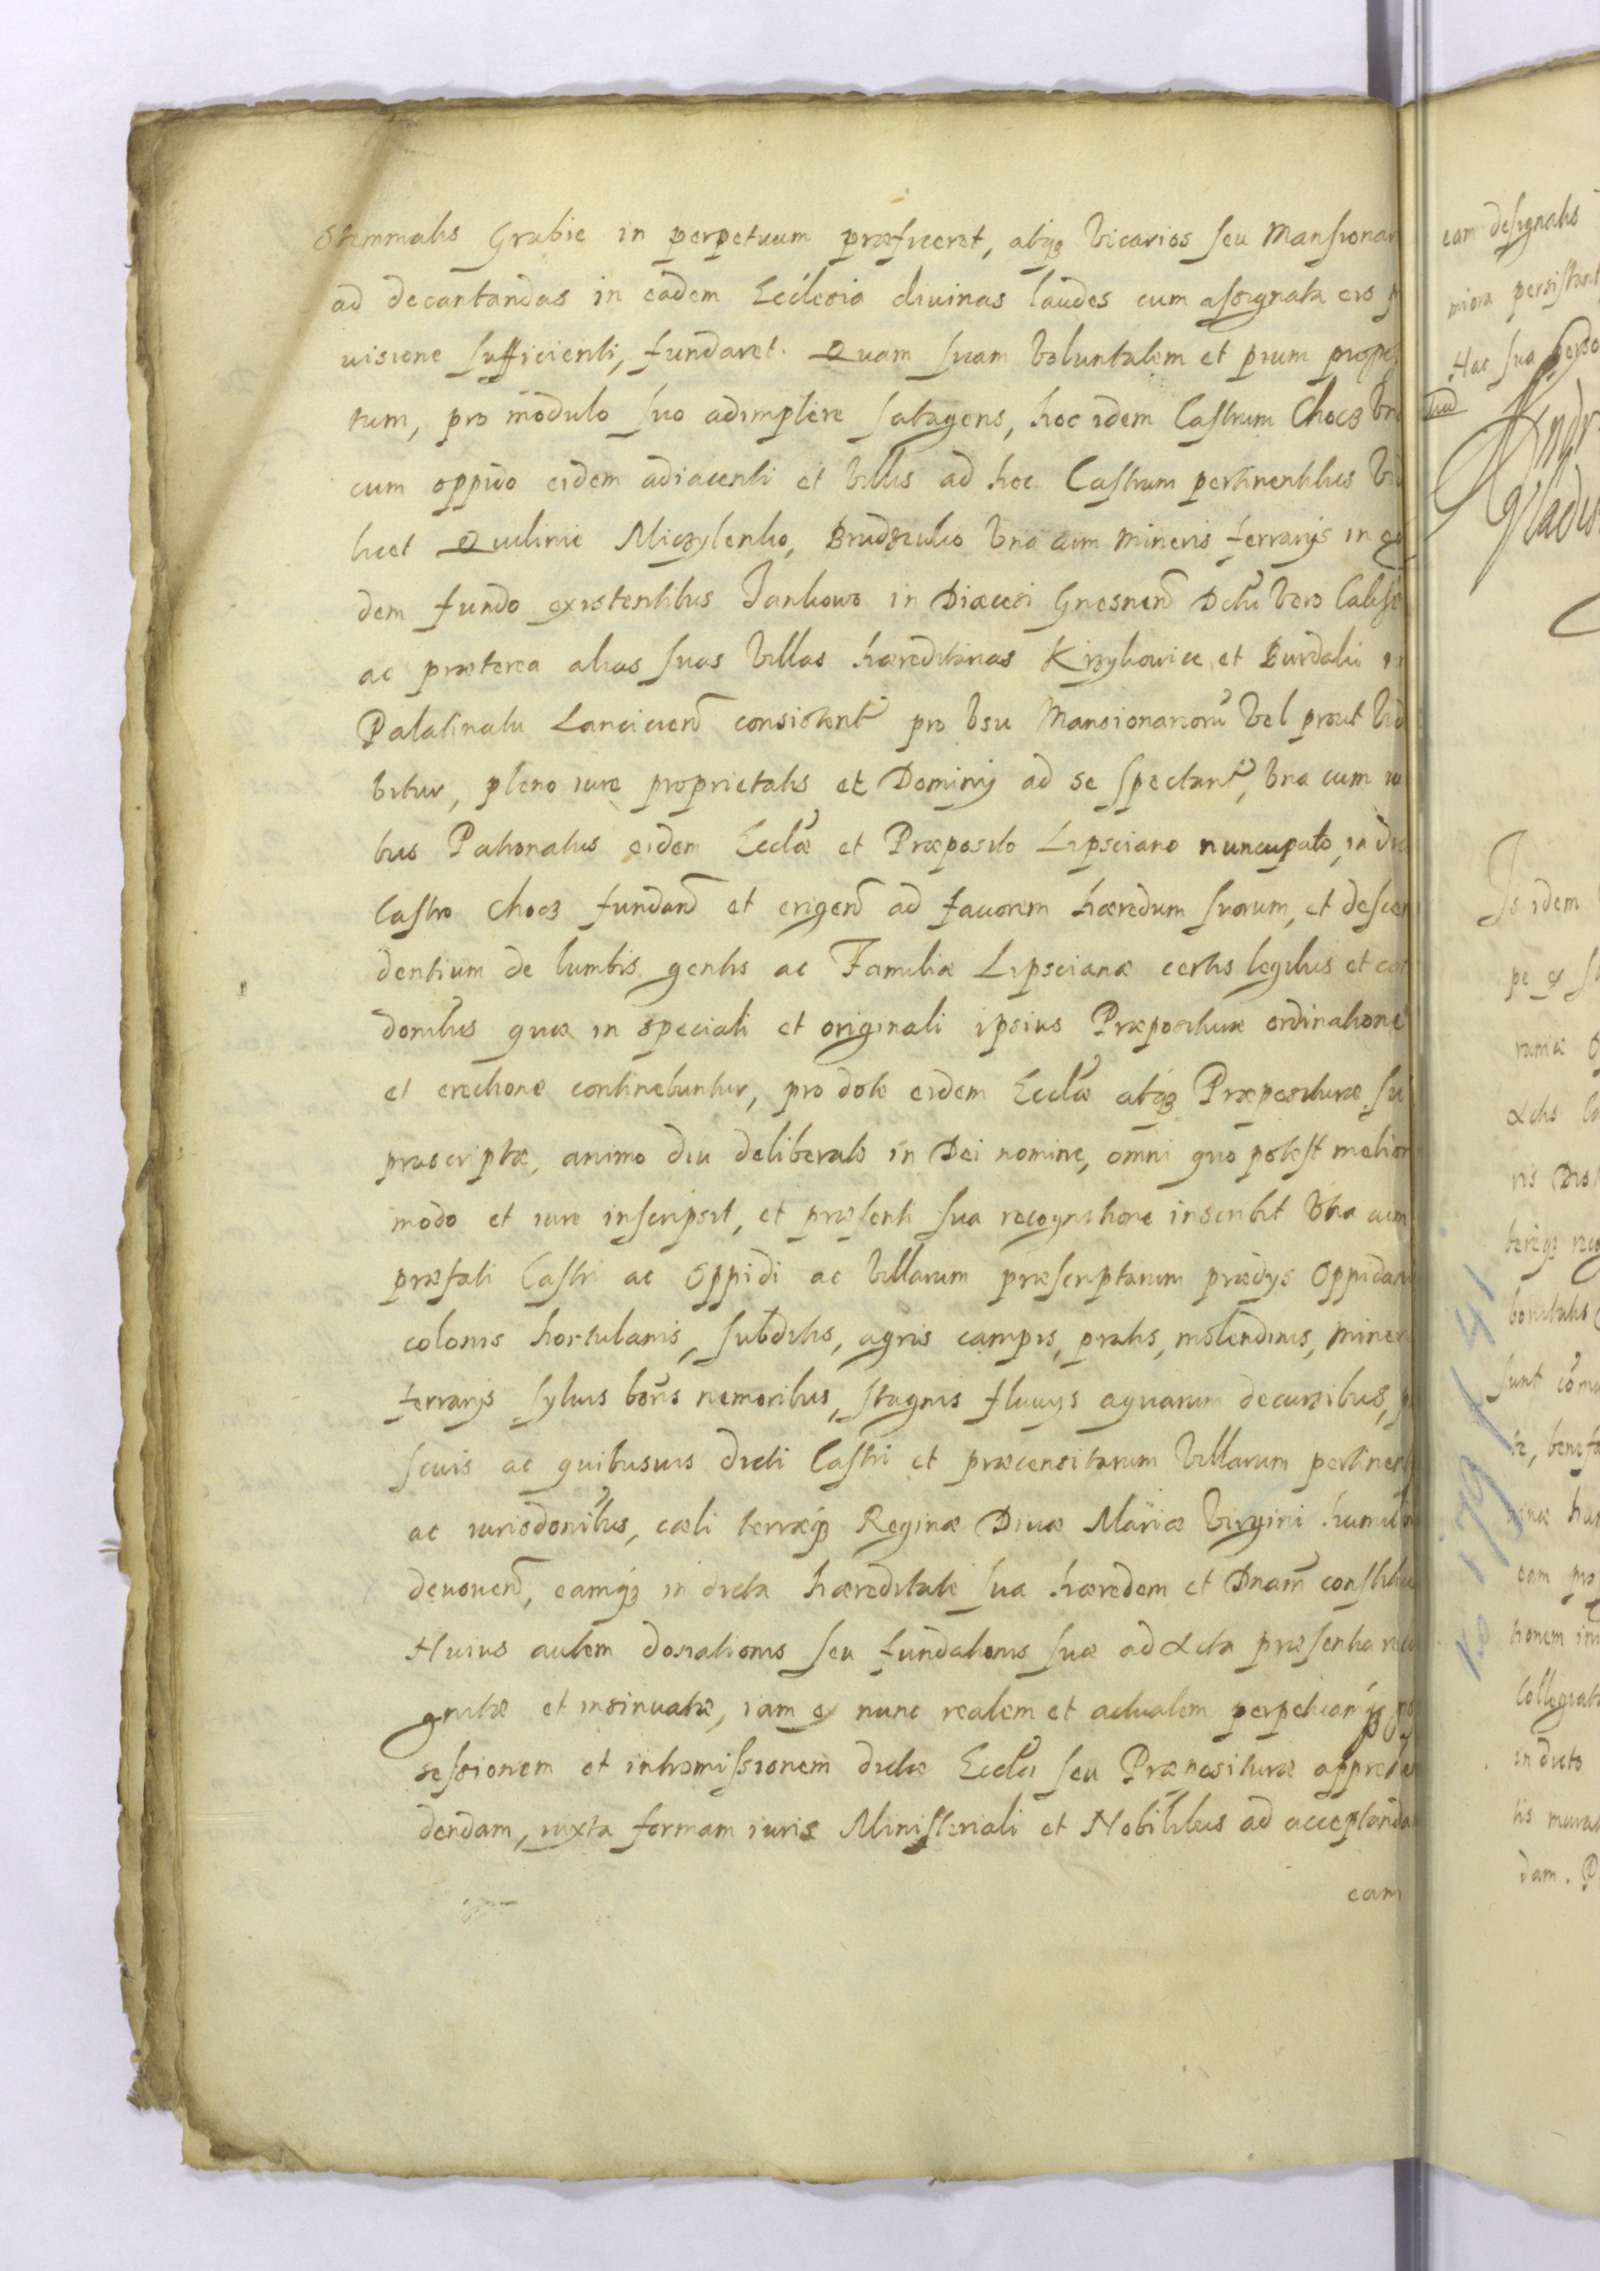 Stemmatis Grabie in perpetuum præficeret, atq3 Vicarios seu Mansionar
ad decantandas in eadem Ecclesia diuinas laudes cum assignata eis
uisione sufficienti, fundaret. Quam suam Voluntatem et pium propos
tum, pro modulo suo adimplere satagens, hoc idem Castrum Chocz Vna
cum oppido eidem adiacenti et Villis ad hoc Castrum pertinentibus Vid
licet Quilinie Nowa Brudzewko Vna cum Mineris ferrarijs in eo
dem fundo existentibus Jankowo in Diæcesi Gnesnen Dctu Vero Calis
ac præterea alias suas Villas hæreditarias Krzykowice, et Burdaki in
Palatinatu Lancicien consistent pro Vsu Mansionarioru Vel prout Vid
bitur, pleno iure proprietatis et Dominij ad se spectant, Vna cum iu
bus Patronatus eidem Eccla et Præposito Lipsciano nuncupato, in dic
Castro Chocz fundand et erigend ad fauorem hæredum suorum, et descen
dentium de lumbis gentis ac Familiæ Lipscianæ certis legibus et con
donibus quæ in speciali et originali ipsius Præpositiuræ ordinatione
et erectione continebuntur, pro dote eidem Ecclæ atq3 Præpositurae su
prascriptæ, animo diu deliberato in Dei nomine, omni quo potest melior
modo et iure inscripsit, et præsenti sua recognitione inscribit Vna cum
præfati Castri ac Oppidi ac Villarum præscriptarum prædys Oppidan
colonis hortulanis, subditis, agris campis, pratis, molendinis, miner
ferrarijs syluis boris nemoribus, stagnis fluuys aquarum decursibus, p
scuis ac quibusuis dicti Castri et præcensitarum Villarum pertinent
ac iurisdonibus, cæli terræq3 Reginæ Diuæ Mariæ Virgini humili
deuouend, eamq3 in dicta hæreditate sua hæredem et Dnam constitu
Huius autem donationis seu fundationis suæ ad Acta præsentia reco
gnitæ et insinuatæ, iam ex nunc realem et actualem perpetuamq3 pos
sessionem et intromissionem dictæ Eccla seu Præpositurae appreh
dendam, iuxta formam iuris Ministeriali et Nobilibus ad acceptanda
eam
eam designatis
persistant
Hac sua perso
Is idem
pe ex
Actis
teriq3 reco
bonitatis
sunt
te, benefa
eam pro
tionem
Collegiat
in dicto
tis
dam. P